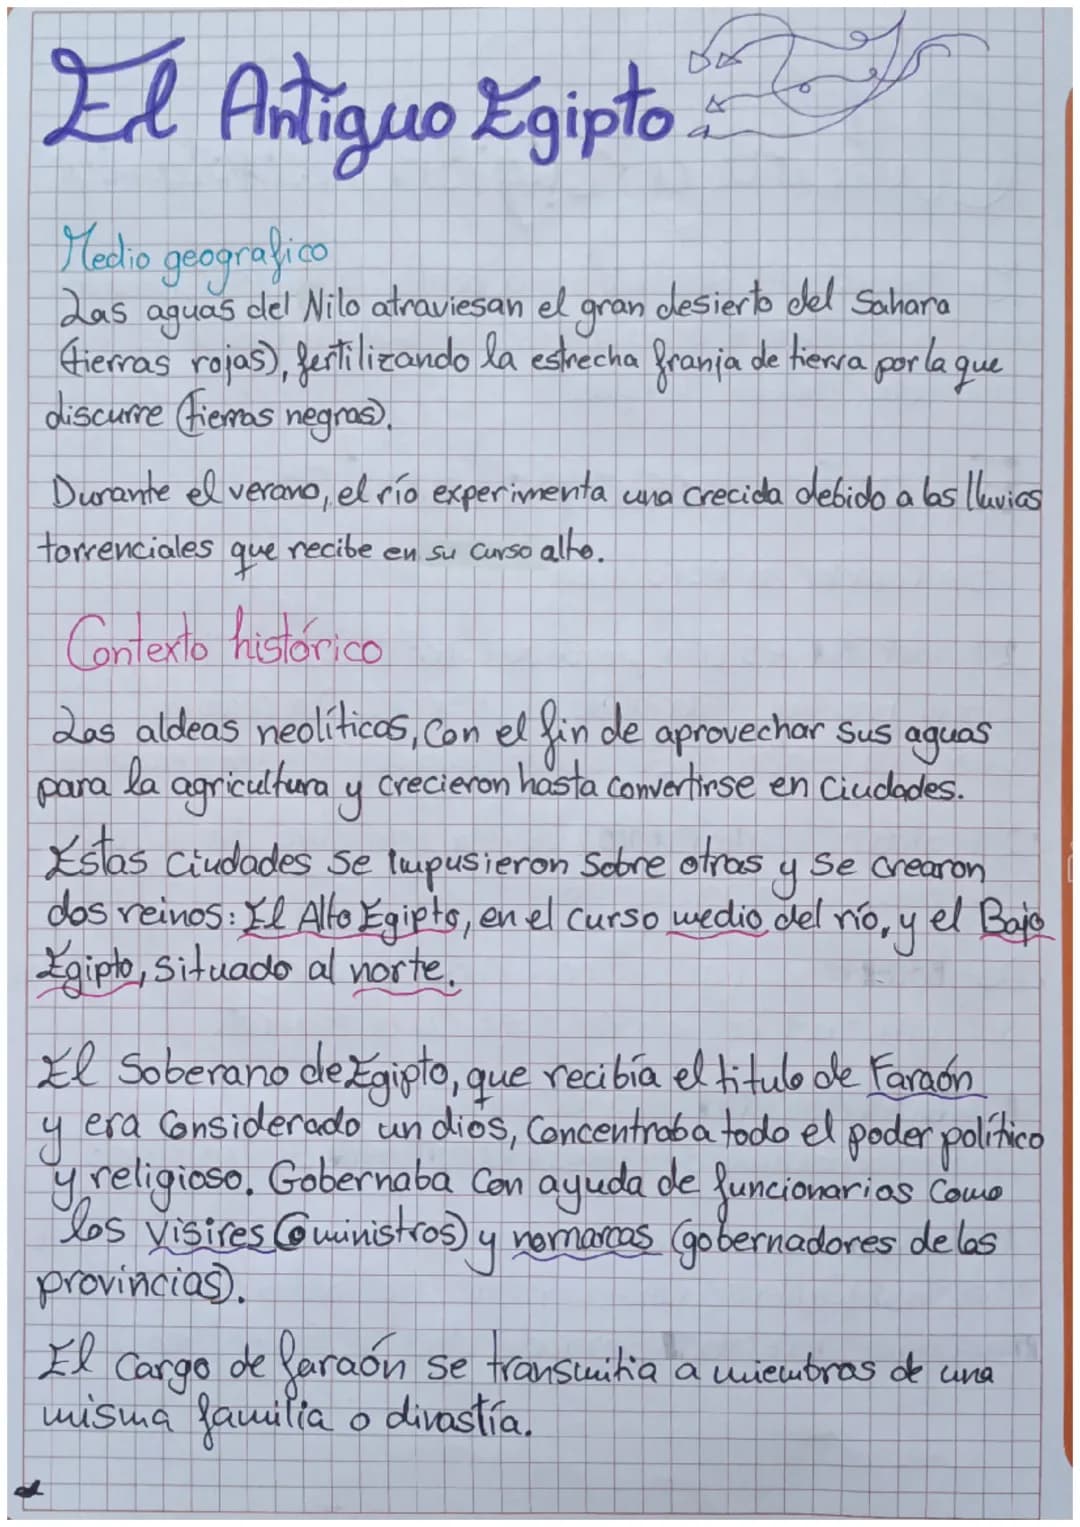 El Antiguo Egipto
Medio geografico
Las aguas del Nilo atraviesan el gran desierto del Sahara
(tierras rojas), fertilizando la estrecha franja de tierra por la que
discurre (tierras negras).
Durante el verano, el río experimenta una crecida debido a las lluvias
torrenciales que recibe en su curso alto.
Contexto histórico
Las aldeas neolíticas, con el fin de aprovechar sus aguas
para la agricultura y crecieron hasta convertirse en ciudades.
Estas ciudades se impusieron sobre otras y se crearon
dos reinos: El Alto Egipto, en el curso medio del río, y el Bajo
Egipto, situado al norte.
El soberano de Egipto, que recibía el titulo de Faraón
y era considerado un dios, concentraba todo el poder político
y religioso. Gobernaba con ayuda de funcionarios como
los visires (o ministros) y nomarcas (gobernadores de las
provincias).
El cargo de faraón se transmitia a miembros de una
misma familia o dinastía.